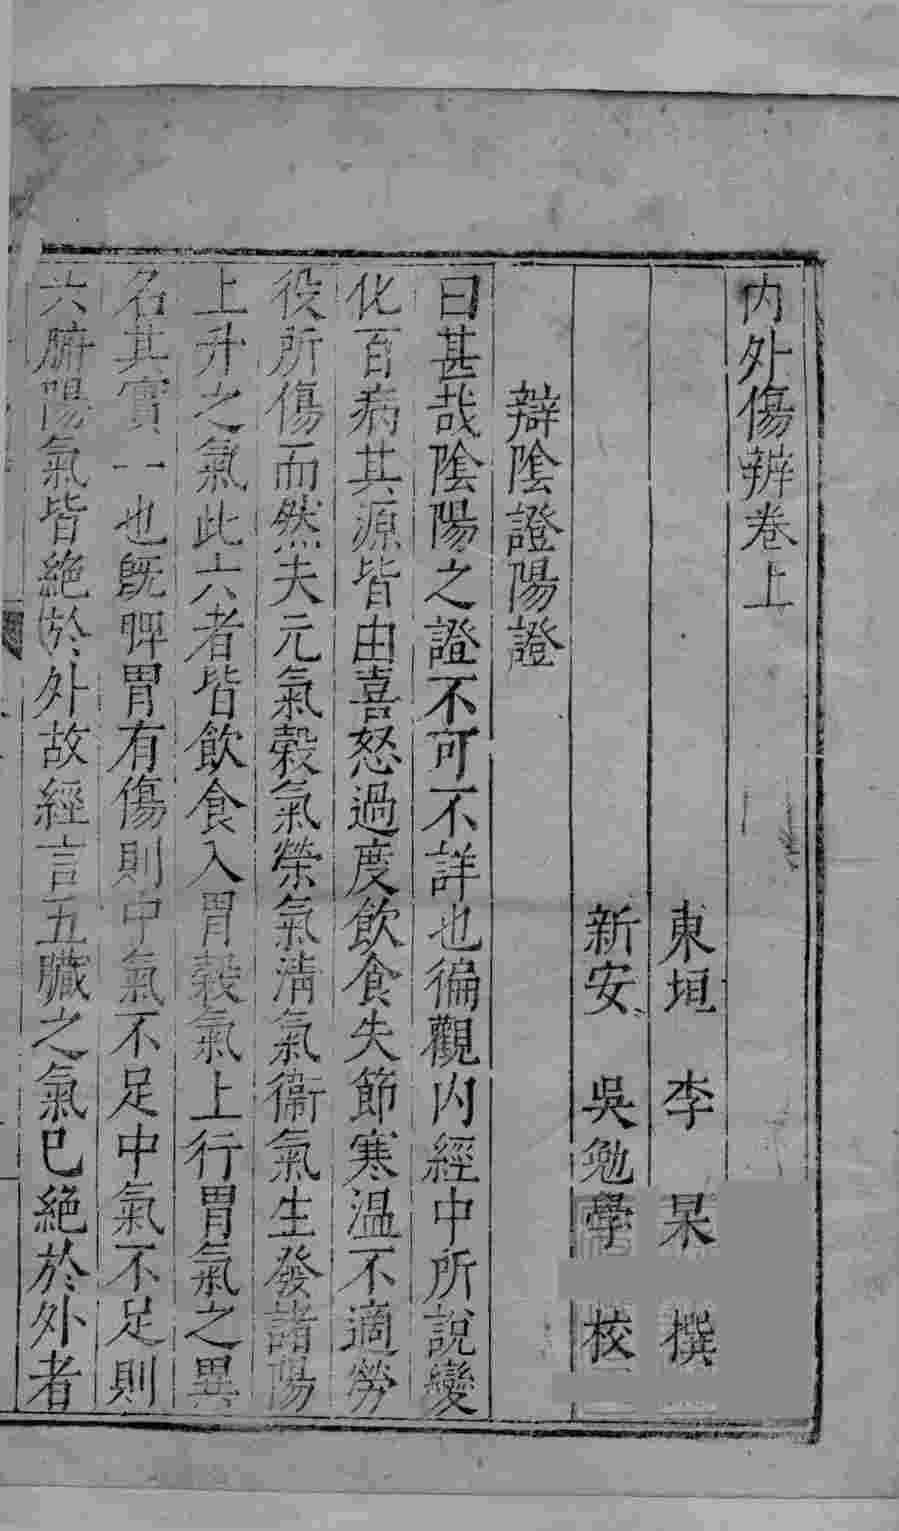 內外傷辨卷上
東垣 李 杲 撰
新安 吳勉學 校
辯陰證陽證
曰甚哉陰陽之證不可不詳也徧觀內經中所說變
化百病其源皆由喜怒過度飲食失節寒溫不適勞
役所傷而然夫元氣穀氣榮氣淸氣衞氣生發諸陽
上升之氣此六者皆飲食入胃穀氣上行胃氣之異
名其實一也旣脾胃有傷則中氣不足中氣不足則
六腑陽氣皆絕於外故經言五臟之氣已絕於外者